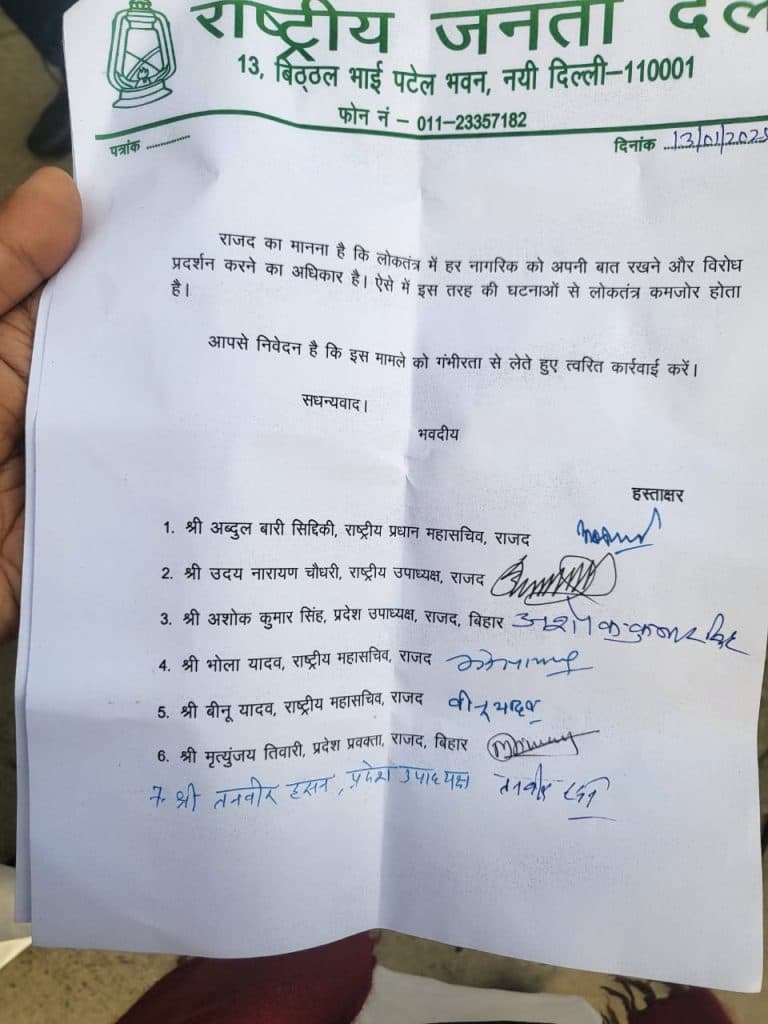 राष्ट्रीय जनता दल
13, बिठ्ठल भाई पटेल भवन, नयी दिल्ली–110001
फोन नं – 011-23357182
पत्रांक .............. दिनांक ...13/01/2025
राजद का मानना है कि लोकतंत्र में हर नागरिक को अपनी बात रखने और विरोध
प्रदर्शन करने का अधिकार है। ऐसे में इस तरह की घटनाओं से लोकतंत्र कमजोर होता
है।
आपसे निवेदन है कि इस मामले को गंभीरता से लेते हुए त्वरित कार्रवाई करें।
सधन्यवाद।
भवदीय
हस्ताक्षर
1. श्री अब्दुल बारी सिद्दिकी, राष्ट्रीय प्रधान महासचिव, राजद
2. श्री उदय नारायण चौधरी, राष्ट्रीय उपाध्यक्ष, राजद
3. श्री अशोक कुमार सिंह, प्रदेश उपाध्यक्ष, राजद, बिहार अशोक कुमार सिंह
4. श्री भोला यादव, राष्ट्रीय महासचिव, राजद
5. श्री बीनू यादव, राष्ट्रीय महासचिव, राजद बीनू यादव
6. श्री मृत्युंजय तिवारी, प्रदेश प्रवक्ता, राजद, बिहार
7. श्री तनवीर हसन, प्रदेश उपाध्यक्ष तनवीर हसन